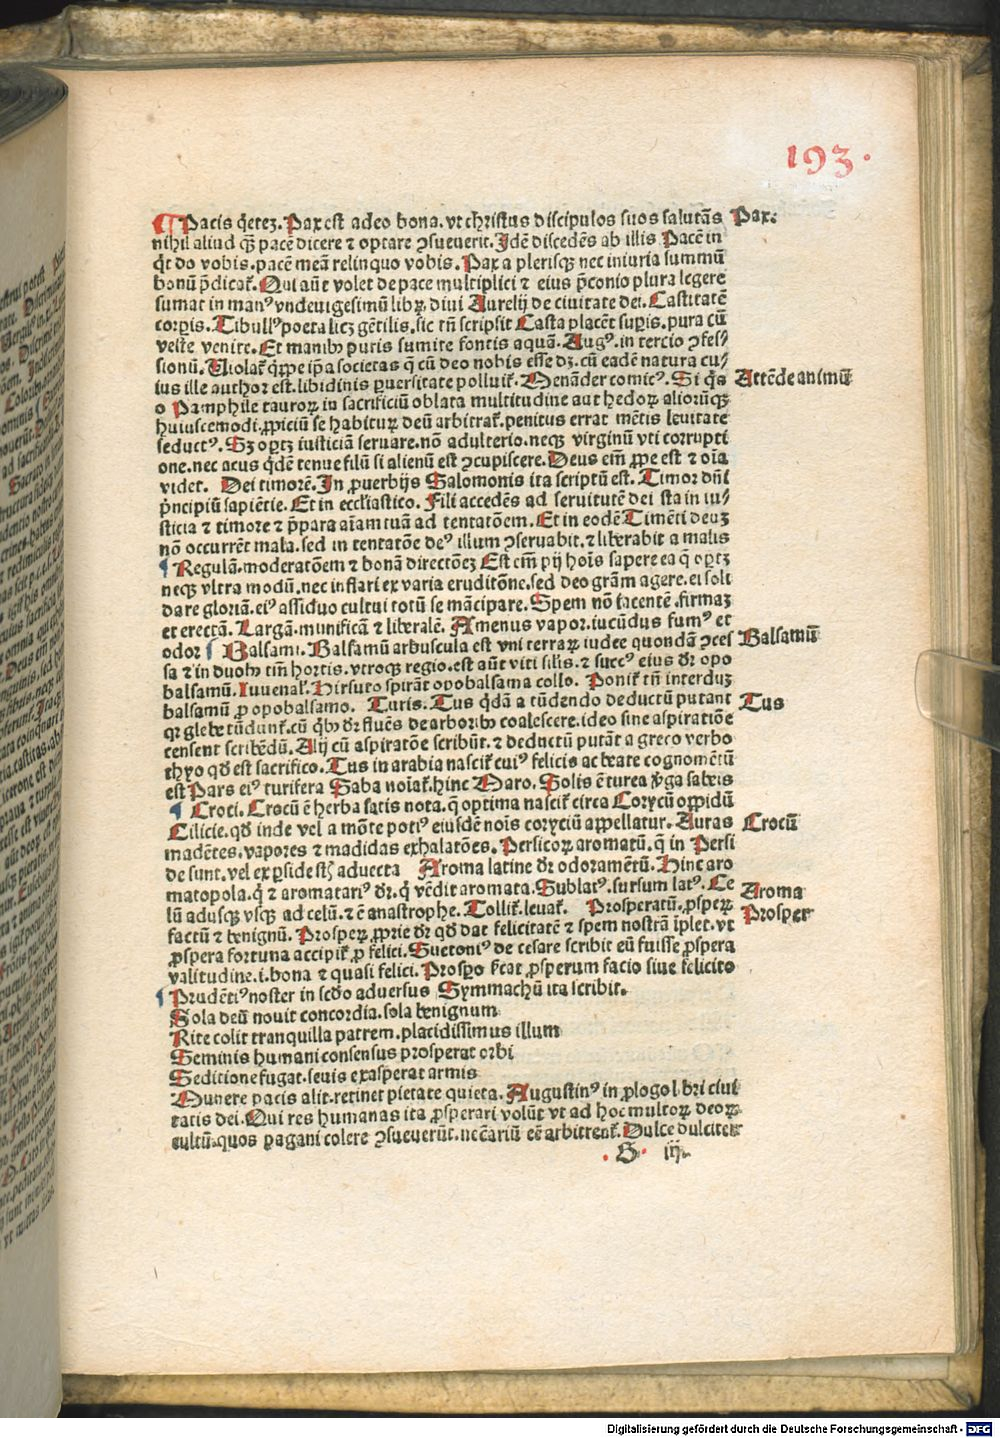 193.
Pacis q̄etez. Pax est adeo bona. vt christus discipulos suos salutās Pax.
nihil aliud q̄ȝ pacē dicere ⁊ optare ꝯsueuerit. Idē discedēs ab illis. Pacē in
qͥt do vobis. pacē meā relinquo vobis. Pax a plerisqȝ nec iniuria summū
bonū p̄dicat̄. Qui aūt volet de pace multiplici ⁊ eius p̄conio plura legere
sumat in manꝰ vndeuigesimū libꝝ diui Aurelij de ciuitate dei. Castitatē
corpis. Tibullꝰ poeta licȝ gētilis. sic tn̄ scripsit Casta placēt suꝑis. pura cū
veste venite. Et manibȝ puris sumite fontis aquā. Augꝰ. in tercio ꝯfes⸗
sionū. Uiolat̄ q̄ꝑpe ip̄a societas q̄ cū deo nobis esse dȝ. cū eadē natura cu⸗
ius ille author est. libidinis ꝑuersitate polluit̄. Menāder comicꝰ. Si q̄s Attēde animū
o Pamphile tauroꝝ in sacrificiū oblata multitudine aut hedoꝝ aliorūqȝ
huiuscemodi. ꝓpiciū se habituꝝ deū arbitrat̄. penitus errat mētis leuitate
seductꝰ. Sȝ oꝑtȝ iusticiā seruare. nō adulterio. neqȝ virginū vti corrupti
one. nec acus q̄dē tenue filū si alienū est ꝯcupiscere. Deus em̄ ꝓpe est ⁊ oīa
videt. Dei timorē. In ꝓuerbijs Salomonis ita scriptū est. Timor dn̄i
p̄ncipiū sapiētie. Et in ecclīastico. Fili accedēs ad seruitutē dei sta in iu⸗
sticia ⁊ timore ⁊ p̄para aīam tuā ad tentatōem. Et in eodē Timēti deuȝ
nō occurrēt mala. sed in tentatōe deꝰ illum ꝯseruabit. ⁊ liberabit a malis
¶ Regulā. moderatōem ⁊ bonā directōeȝ Est em̄ pij hoīs sapere ea q̄ oꝑtȝ
neqȝ vltra modū. nec inflari ex varia eruditōne. sed deo grām agere. ei soli
dare gloriā. eiꝰ assiduo cultui totū se mācipare. Spem nō iacentē. firmaȝ
et erectā. Largā. munificā ⁊ liberalē. Amenus vapor. iucūdus fumꝰ et
odor ¶ Balsami. Balsamū arbuscula est vni terraꝝ iudee quondā ꝯces Balsamū
sa ⁊ in duobȝ tm̄ hortis. vtroqȝ regio. est aūt viti silis. ⁊ succꝰ eius dr̄ opo
balsamū. Iuuenal̄. Hirsuto spirāt opobalsama collo. Ponit̄ tn̄ interduȝ
balsamū ꝓ opobalsamo. Turis. Tus q̄dā a tūdendo deductū putant Tus
qꝛ glebe tūdunt̄. cū q̄bȝ dr̄ fluēs de arboribȝ coalescere. ideo sine aspiratiōe
censent scribēdū. Alij cū aspiratōe scribūt. ⁊ deductū putāt a greco verbo
thyo qd̄ est sacrifico. Tus in arabia nascit̄ cuiꝰ felicis ac beate cognomētū
est Pars eiꝰ turifera Saba noīat̄. hinc Maro. Solis ē turea v̓ga sabeis
¶ Croci. Crocū ē herba satis nota. q̄ optima nascit̄ circa Corycū oppidū
Cilicie. qd̄ inde vel a mōte potiꝰ eiusdē noīs coryciū appellatur. Auras Crocū
madētes. vapores ⁊ madidas exhalatōes. Persicoꝝ aromatū. q̄ in Persi
de sunt. vel ex ꝑside sūt aduecta Aroma latine dr̄ odoramētū. Hinc aro
matopola. q̄ ⁊ aromatariꝰ dr̄. q̄ vēdit aromata. Sublatꝰ. sursum latꝰ. Ce Aroma
lū adusqȝ vsqȝ ad celū. ⁊ ē anastrophe. Tollit̄. leuat̄. Prosperatū. ꝓspeꝝ Prosper
factū ⁊ benignū. Prospeꝝ ꝓprie dr̄ qd̄ dat felicitatē ⁊ spem nostrā īplet. vt
ꝓspera fortuna accipit̄ ꝓ felici. Suetoniꝰ de cesare scribit eū fuisse ꝓspera
valitudine. i. bona ⁊ quasi felici. Prosꝑo ficat ꝓsperum facio siue felicito
¶ Prudētiꝰ noster in scd̄o aduersus Symmachū ita scribit.
Sola deū nouit concordia. sola benignum
Rite colit tranquilla patrem. placidissimus illum
Seminis humani consensus prosperat orbi
Seditione fugat. seuis exasperat armis
Munere pacis alit. retinet pietate quieta. Augustinꝰ in ꝓlogo l. bri ciui
tatis dei. Qui res humanas ita ꝓsperari volūt vt ad hoc multoꝝ deoꝝ
cultū. quos pagani colere ꝯsueuerūt. necāriū eē arbitrent̄. Dulce dulciter
S iij.
Digitalisierung gefördert durch die Deutsche Forschungsgemeinschaft - DFG